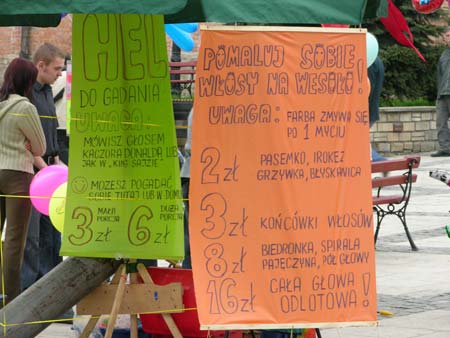 HEL
DO GADANIA
UWAGA:
MÓWISZ GŁOSEM
KACZORA DONALDA LUB
JAK W „KING SAJZIE"
MOŻESZ POGADAĆ
SOBIE TUTAJ LUB W DOMU
MAŁA PORCJA
3 zł
DUŻA PORCJA
6 zł
POMALUJ SOBIE
WŁOSY NA WESOŁO!
UWAGA: FARBA ZMYWA SIĘ
PO 1 MYCIU
2 zł PASEMKO, IROKEZ
GRZYWKA, BŁYSKAWICA
3 zł KOŃCÓWKI WŁOSÓW
8 zł BIEDRONKA, SPIRALA
PAJĘCZYNA, PÓŁ GŁOWY
16 zł CAŁA GŁOWA
ODLOTOWA!